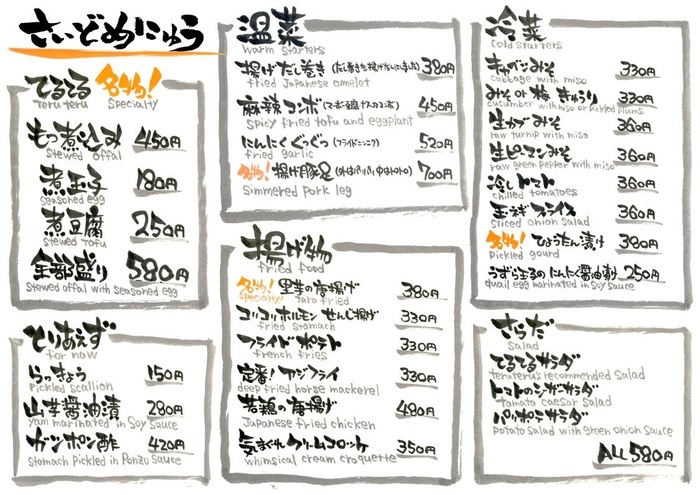 さいどめにゅう
てるてる 名物!
Teru teru Specialty
もつ煮込み 450円
Stewed offal
煮玉子 180円
seasoned egg
煮豆腐 250円
stewed tofu
全部盛り 580円
Stewed offal with seasoned egg
とりあえず
for now
らっきょう 150円
Pickled scallion
山芋醤油漬 280円
yam marinated in Soy Sauce
ガツポン酢 420円
Stomach pickled in Ponzu Sauce
温菜
Warm Starters
揚げだし巻き 380円
fried Japanese omelet
麻辣コンボ 450円
Spicy fried tofu and eggplant
にんにくぐっつぐつ (フライドニンニク) 520円
fried garlic
名物! 揚げ豚足 (外はパリパリ中はトロトロ) 700円
Simmered Pork leg
揚げ物
fried food
名物! 里芋の唐揚げ 380円
Specialty! taro fried
コリコリホルモン せんじ揚げ 330円
fried stomach
フライドポテト 330円
french fries
定番!アジフライ 330円
deep fried horse mackerel
若鶏の唐揚げ 480円
Japanese fried chicken
気まぐれクリームコロッケ 350円
whimsical cream croquette
冷菜
Cold Starters
キャベツみそ 330円
cabbage with miso
みそ or 梅 きゅうり 330円
cucumber with miso or pickled plums
生カブみそ 360円
raw turnip with miso
生ピーマンみそ 360円
raw green pepper with miso
冷しトマト 360円
chilled tomatoes
玉ねぎスライス 360円
sliced onion salad
名物! ひょうたん漬け 380円
Pickled gourd
うずら玉子のにんにく醤油漬け 250円
quail egg marinated in Soy Sauce
さらだ
Salad
てるてるサラダ
teruteru's recommended Salad
トマトのシーザーサラダ
Tomato caesar Salad
パリポテサラダ
Potato Salad with green onion Sauce
ALL 580円